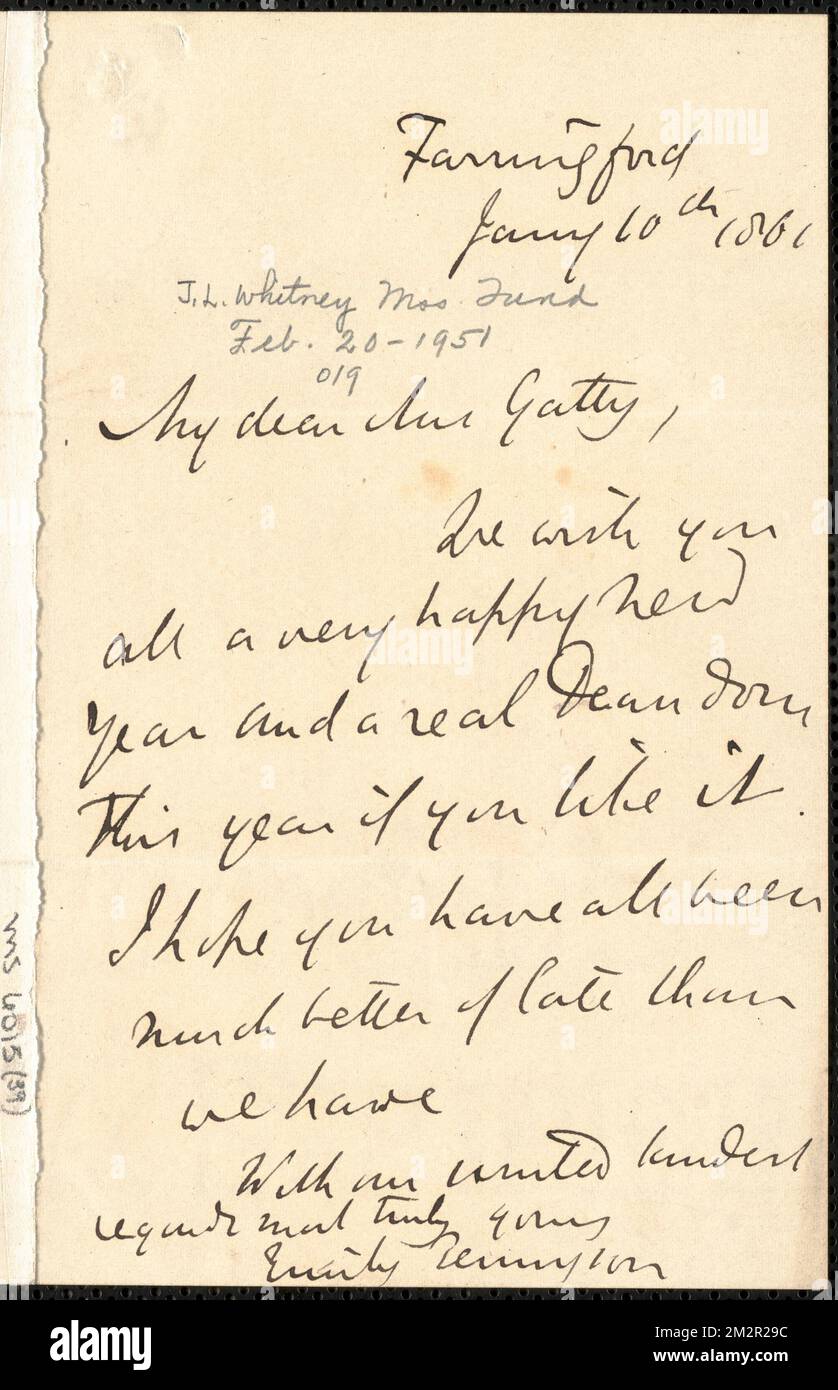 Farringford
Jany 10th 1861
J.L. Whitney Mss Fund
Feb. 20-1951
019
My dear Mrs Gatty,
We wish you
all a very happy New
Year and a real Deandom
This year if you like it.
I hope you have all been
much better of late than
we have
With our united kindest
regards most truly yours
Emily Tennyson
MS 4015 (39)
alamy
Image ID: 2M2R29C
www.alamy.com